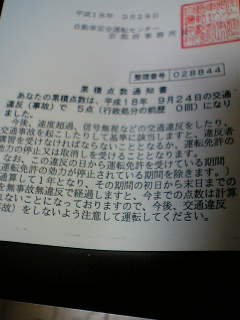 平成18年 9月28日
自動車安全運転センター
京都府事務所
整理番号 028844
累積点数通知書
あなたの累積点数は、平成18年 9月24日の交通
違反(事故)で 5点(行政処分の前歴 0回)になり
ました。
今後、速度超過、信号無視などの交通違反をしたり、
交通事故を起こしたりして基準に該当しますと、違反者
講習を受けなければならないこととなるか、運転免許の
効力の停止又は取消しを受けることとなります。
なお、この違反の日から運転免許を受けている期間
運転免許の効力が停止されている期間を除きます。)
算して1年となり、その期間の初日から末日までの
を無事故無違反で経過しますと、今までの点数は計算
れないことになっておりますので、今後、交通違反
事故)をしないよう注意して運転してください。